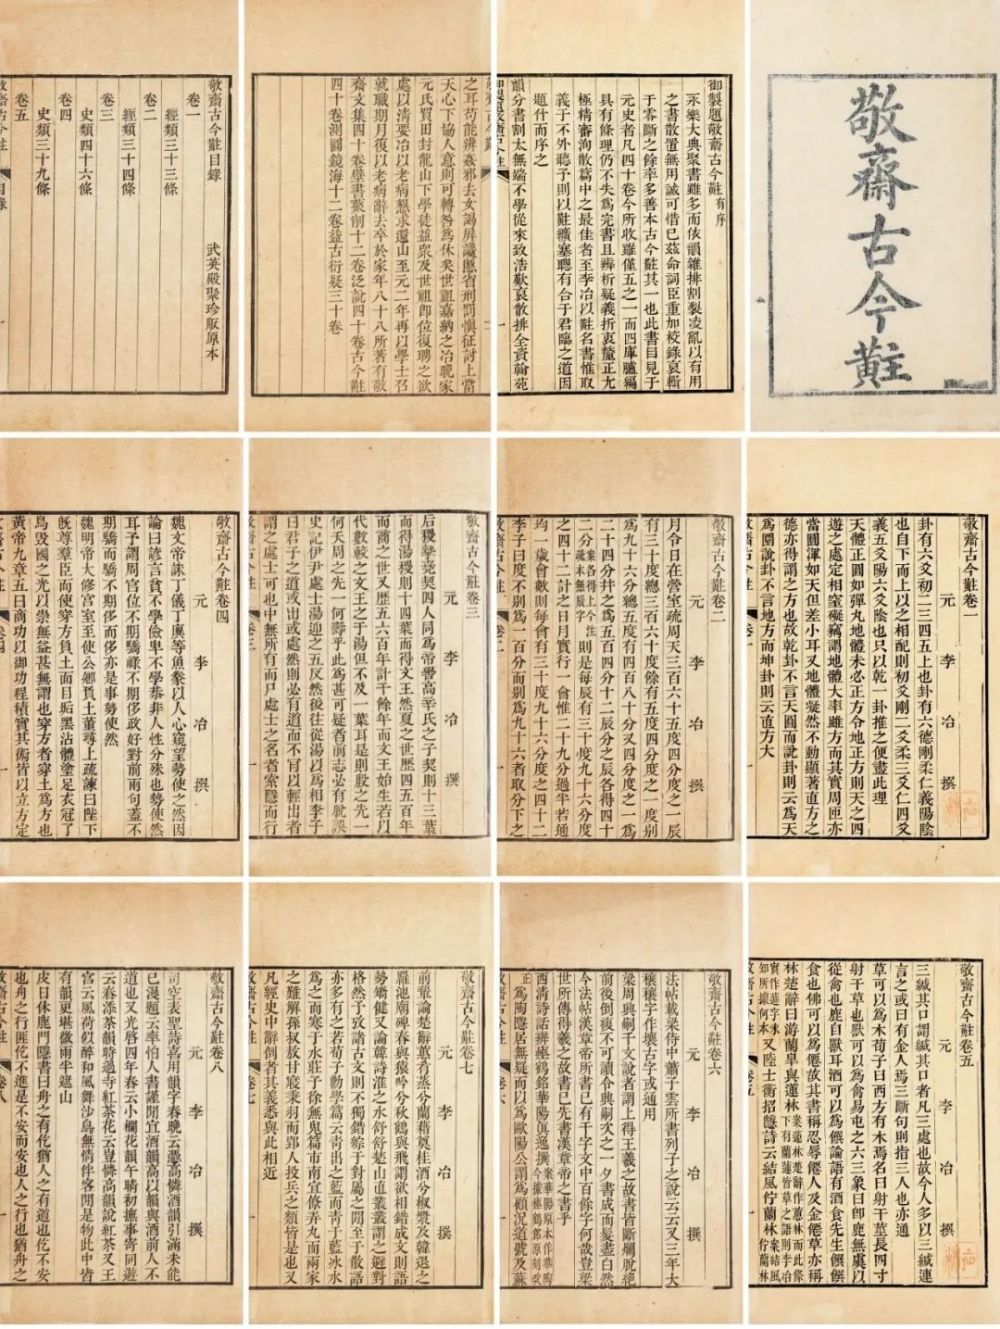 敬齋古今黈
御製題敬齋古今黈有序
永樂大典聚書雖多而依韻雜排割裂凌亂以有用
之書散置無用誠可惜已茲命詞臣重加校錄裒輯
于零斷之餘率多善本古今黈其一也此書目見于
元史者凡四十卷今所收雖僅五之一而四庫臚編
具有條理仍不失為完書且辨析疑義折衷釐正尤
極精審洵散篇中之最佳者至李冶以黈名書惟取
義于不外聽予則以黈纊塞聰有合于君臨之道因
題什而序之
韻分書割太無端不學從來致浩歎裒散排全資翰苑
之耳苟能辨姦邪去女謁屏讒慝省刑罰愼征討上當
天心下協人意則可轉咎為休矣世祖嘉納之冶晚家
元氏買田封龍山下學徒益衆及世祖卽位復聘之欲
處以淸要冶以老病懇求還山至元二年再以學士召
就職期月復以老病辭去卒於家年八十八所著有敬
齋文集四十卷壁書藂削十二卷泛說四十卷古今黈
四十卷測圓鏡海十二卷益古衍疑三十卷
敬齋古今黈目錄
武英殿聚珍版原本
卷一
經類三十三條
卷二
經類三十四條
卷三
史類四十六條
卷四
史類三十九條
卷五
敬齋古今黈卷一
元 李 冶 撰
卦有六爻初二三四五上也卦有六德剛柔仁義陽陰
也自下而上以之相配則初爻剛二爻柔三爻仁四爻
義五爻陽六爻陰也只以乾一卦推之便盡此理
天體正圓如彈丸地體未必正方令地正方則天之四
遊之處定相窒礙竊謂地體大率雖方而其實周匝亦
當圓渾如天但差小耳又地體凝然不動顯著直方之
德亦得謂之方也故乾卦不言天圓而說卦則云為天
為圜說卦不言地方而坤卦則云直方大
敬齋古今黈卷二
元 李 冶 撰
月令日在營室疏周天三百六十五度四分度之一辰
有三十度總三百六十度餘有五度四分度之一度别
為九十六分總五度有四百八十分又四分度之一為
二十四分幷之為五百四分十二辰分之辰各得四十
二分
則是每辰有三十度九十六分度
之四十二計之日月實行一會惟二十九分過半若通
均一歲會數則每會有三十度九十六分度之四十二
李子曰度不别為一百分而别為九十六者取分下之
敬齋古今黈卷三
元 李 冶 撰
后稷挚堯契四人同為帝嚳高辛氏之子契則十三葉
而得湯稷則十四葉而得文王然夏之世歷四五百年
而商之世又歷五六百年計千餘年而文王始生若以
代數較之文王之于湯但不及一葉耳是則殷之先一
何夭周之先一何壽乎此為甚可疑者前志必有舛誤
史記伊尹處士湯迎之五反然後往從湯以為相李子
曰君子之道或出或處然則必有道而不肯以輕出者
謂之處士可也中無所有而尸處士之名者索隱而行
敬齋古今黈卷四
元 李 冶 撰
魏文帝誅丁儀丁廙等魚豢以人心窺望勢使之然因
論曰諺言貧不學儉卑不學恭非人性分殊也勢使然
耳予謂周官位不期驕祿不期侈政好對前兩句蓋不
期驕而驕不期侈而侈亦是事勢使然
魏明帝大修宮室至使公卿負土董尋上疏諫曰陛下
旣尊羣臣而使穿方負土面目垢黑沾體塗足衣冠了
鳥毀國之光以崇無益甚無謂也穿方者穿土為方也
黃帝九章五曰商功以御功程積實其術皆以立方定
敬齋古今黈卷五
元 李 冶 撰
三緘其口謂緘其口者凡三處也故今人多以三緘連
言之或曰有金人焉三斷句則指三人也亦通
草可以為木荀子曰西方有木焉名曰射干莖長四寸
射干草也獸可以為禽易屯之六三象曰卽鹿無虞以
從禽也鹿自獸耳酒可以為饌論語有酒食先生饌饌
食也佛可以為僊故其書稱忍辱僊人及金僊草亦稱
林楚辭曰游蘭臯與蕙林
又陸士衡招隱詩云結風佇蘭林
敬齋古今黈卷六
元 李 冶 撰
法帖帖載梁侍中蕭子雲所書列子之說云云又三年大
穰穰字作壤古字或通用
梁周興嗣千文說者謂上得王羲之故書皆斷爛脫絶
前後倒複不可讀令典嗣次之一夕書成而髮盡白然
今法帖漢章帝所書已有千字文中百餘字何哉豈梁
世所傳得羲之故書已先書漢章帝之書乎
西淸詩話辨瘞鶴銘華陽真逸撰
為陶隱居無疑而以為歐陽公謂為顧况道號及蘇
敬齋古今黈卷七
元 李 冶 撰
前輩論楚辭蕙肴蒸兮蘭藉奠桂酒兮椒漿及韓退之
羅池廟碑春與猿吟兮秋鶴與飛謂欲相錯成文則語
勢矯健又論韓詩淮之水舒舒楚山直叢叢謂之避對
格然予致諸古文則不獨錯綜于對屬之閒至于散語
亦多有之若荀子勸學篇云靑出之藍而靑于藍冰水
為之而寒于水莊子徐無鬼篇市南宜僚弄丸而兩家
之難解孫叔敖甘寢秉羽而郢人投兵之類皆是也又
凡經史中辭倒者其義悉與此相近
敬齋古今黈卷八
元 李 冶 撰
司空表聖詩喜用韻字春晩云憑高憐酒韻引滿未能
已漫題云率怕人書謹閒宜酒韻高以韻與酒前人不
道也又光啓四年春云小欄花韻午晴初撫事寄同遊
云春添茶韻時過寺紅茶花云豈憐高韻說紅茶又王
官云風荷似醉和風舞沙鳥無情伴客閒是物此中皆
有韻更堪微雨半遮山
皮日休鹿門隱書曰舟之有仡猶人之有道也仡不安
也舟之行匪仡不進是不安而安也人之行也猶舟之